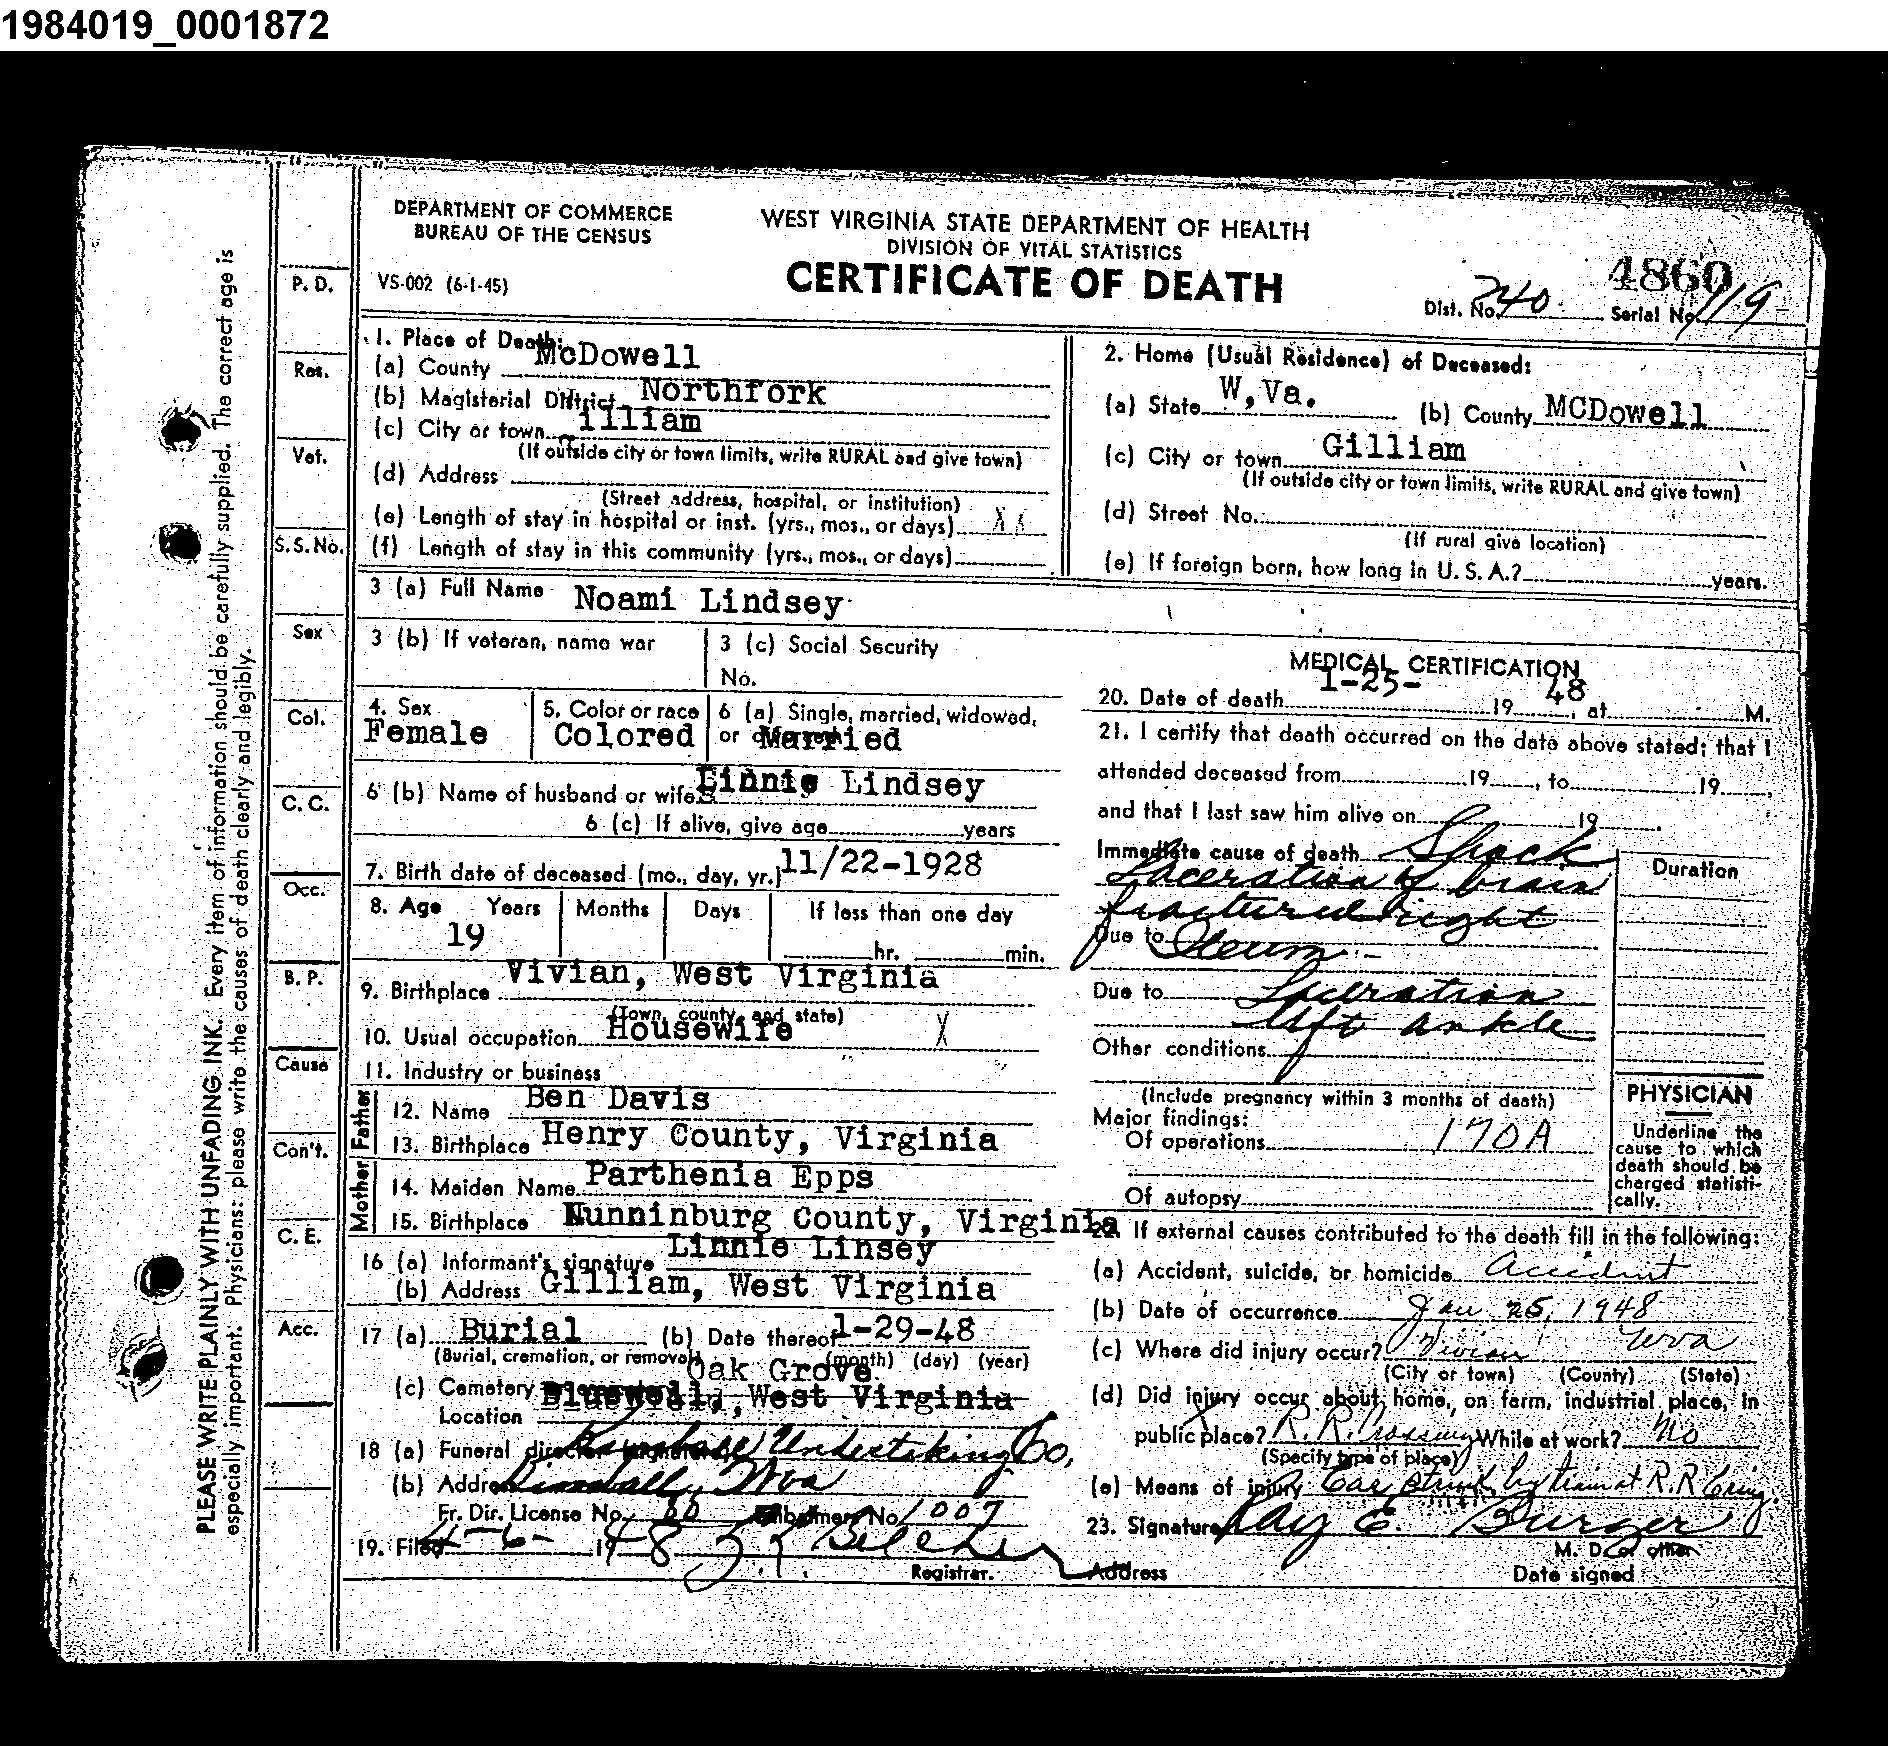 1984019_0001872
DEPARTMENT OF COMMERCE
BUREAU OF THE CENSUS
WEST VIRGINIA STATE DEPARTMENT OF HEALTH
DIVISION OF VITAL STATISTICS
CERTIFICATE OF DEATH
VS-002 (6-1-45)
4860
Dist. No. 240 Serial No. 119
PLEASE WRITE PLAINLY WITH UNFADING INK. Every item of information should be carefully supplied. The correct age is
especially important. Physicians: please write the causes of death clearly and legibly.
P. D.
Res.
Vet.
S. S. No.
Sex
Col.
C. C.
Occ.
B. P.
Cause
Con't.
C. E.
Acc.
1. Place of Death:
(a) County McDowell
(b) Magisterial District Northfork
(c) City or town illiam
(If outside city or town limits, write RURAL and give town)
(d) Address
(Street address, hospital, or institution)
(e) Length of stay in hospital or inst. (yrs., mos., or days)
(f) Length of stay in this community (yrs., mos., or days)
2. Home (Usual Residence) of Deceased:
(a) State W,Va. (b) County MCDowell
(c) City or town Gilliam
(If outside city or town limits, write RURAL and give town)
(d) Street No.
(If rural give location)
(e) If foreign born, how long in U. S. A.? years.
3 (a) Full Name Noami Lindsey
3 (b) If veteran, name war
3 (c) Social Security
No.
4. Sex
Female
5. Color or race
Colored
6 (a) Single, married, widowed,
or divorced Married
6 (b) Name of husband or wife Linnie Lindsey
6 (c) If alive, give age years
7. Birth date of deceased (mo., day, yr.) 11/22-1928
8. Age Years Months Days If less than one day
19 hr. min.
9. Birthplace Vivian, West Virginia
(Town, county, and state)
10. Usual occupation Housewife X
11. Industry or business
Father
12. Name Ben Davis
13. Birthplace Henry County, Virginia
Mother
14. Maiden Name Parthenia Epps
15. Birthplace Nunninburg County, Virginia
16 (a) Informant's signature Linnie Linsey
(b) Address Gilliam, West Virginia
17 (a) Burial (b) Date thereof 1-29-48
(Burial, cremation, or removal) (month) (day) (year)
(c) Cemetery Oak Grove
Location Bluewell, West Virginia
18 (a) Funeral director Undertaking Co,
(b) Address Kimball, Wva
Fr. Dir. License No. Embalmers No. 1007
19. Filed 4-6- 1948 Belcher
Registrar.
MEDICAL CERTIFICATION
20. Date of death 1-25- 19 48, at M.
21. I certify that death occurred on the date above stated; that I
attended deceased from 19 , to 19 ,
and that I last saw him alive on 19 .
Immediate cause of death Shock
Laceration of brain
fractured right
Due to Ileum
Due to Laceration
left ankle
Other conditions
(Include pregnancy within 3 months of death)
Duration
Major findings:
Of operations 170A
Of autopsy
PHYSICIAN
Underline the
cause to which
death should be
charged statisti-
cally.
22. If external causes contributed to the death fill in the following:
(a) Accident, suicide, or homicide Accident
(b) Date of occurrence Jan 25, 1948
(c) Where did injury occur? Vivian Wva
(City or town) (County) (State)
(d) Did injury occur about home, on farm, industrial place, in
public place? R. R. Crossing While at work? No
(Specify type of place)
(e) Means of injury Car struck by train at R.R Cring.
23. Signature Ray E. Burger
M. D. or other
Address Date signed